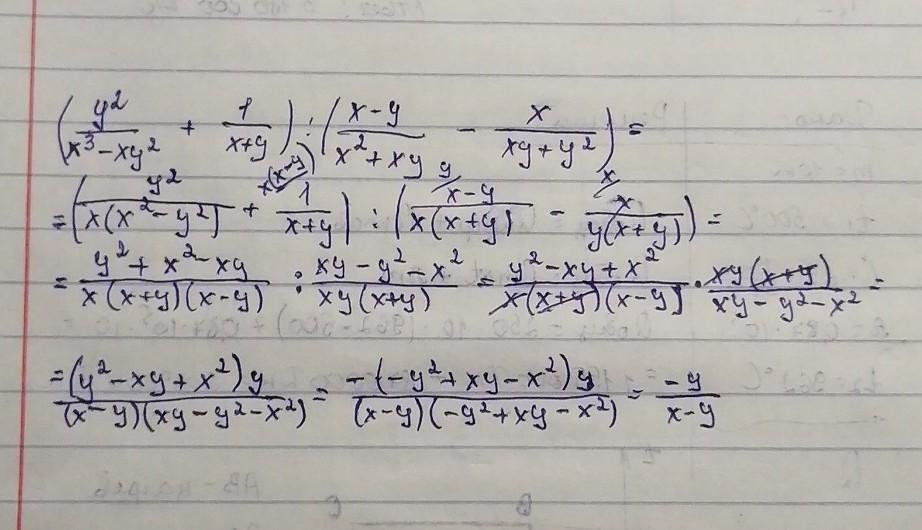 (y²/(x³-xy²) + 1/(x+y)) : ((x-y)/(x²+xy) - x/(xy+y²)) =
= (y²/(x(x²-y²)) + ˣ⁽ˣ⁻ʸ⁾/ 1/(x+y)) : (ʸ/ (x-y)/(x(x+y)) - ˣ/ x/(y(x+y))) =
= (y²+x²-xy)/(x(x+y)(x-y)) : (xy-y²-x²)/(xy(x+y)) = (y²-xy+x²)/(x(x+y)(x-y)) · xy(x+y)/(xy-y²-x²) =
= (y²-xy+x²)y/((x-y)(xy-y²-x²)) = -(-y²+xy-x²)y/((x-y)(-y²+xy-x²)) = -y/(x-y)